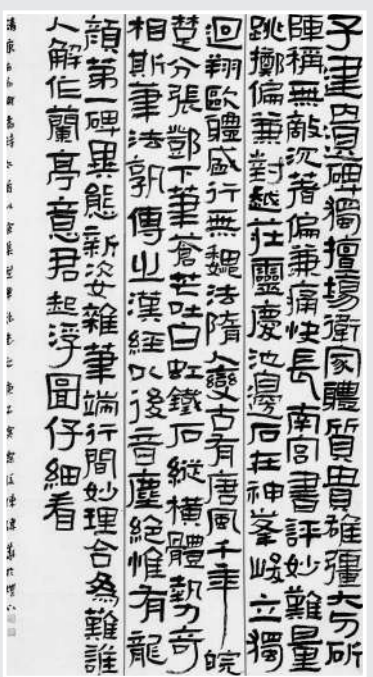 子建內遺碑獨擅場衛家體質貴雄彊大刀斫
陣稱無敵沉著偏兼痛快長南宮書評妙難量
跳擲偏兼對越莊靈慶池邊石在神峯峻立獨
迴翔歐體盛行無魏法隋人變古有唐風千年皖
楚分張鄧下筆蒼茫吐白虹鐵石縱橫體勢奇
相斯筆法孰傳之漢經以後音塵絕惟有龍
顏第一碑異態新姿雜筆端行間妙理合為難誰
人解作蘭亭意君起浮圖仔細看
清康南海論書詩六首以